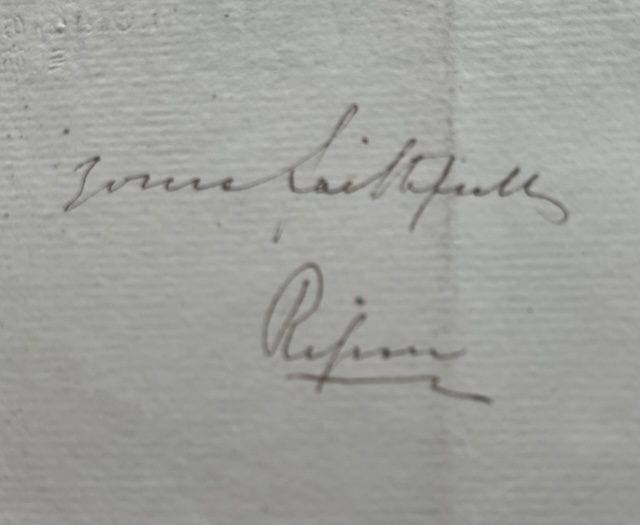 Yours faithfully
Ripon